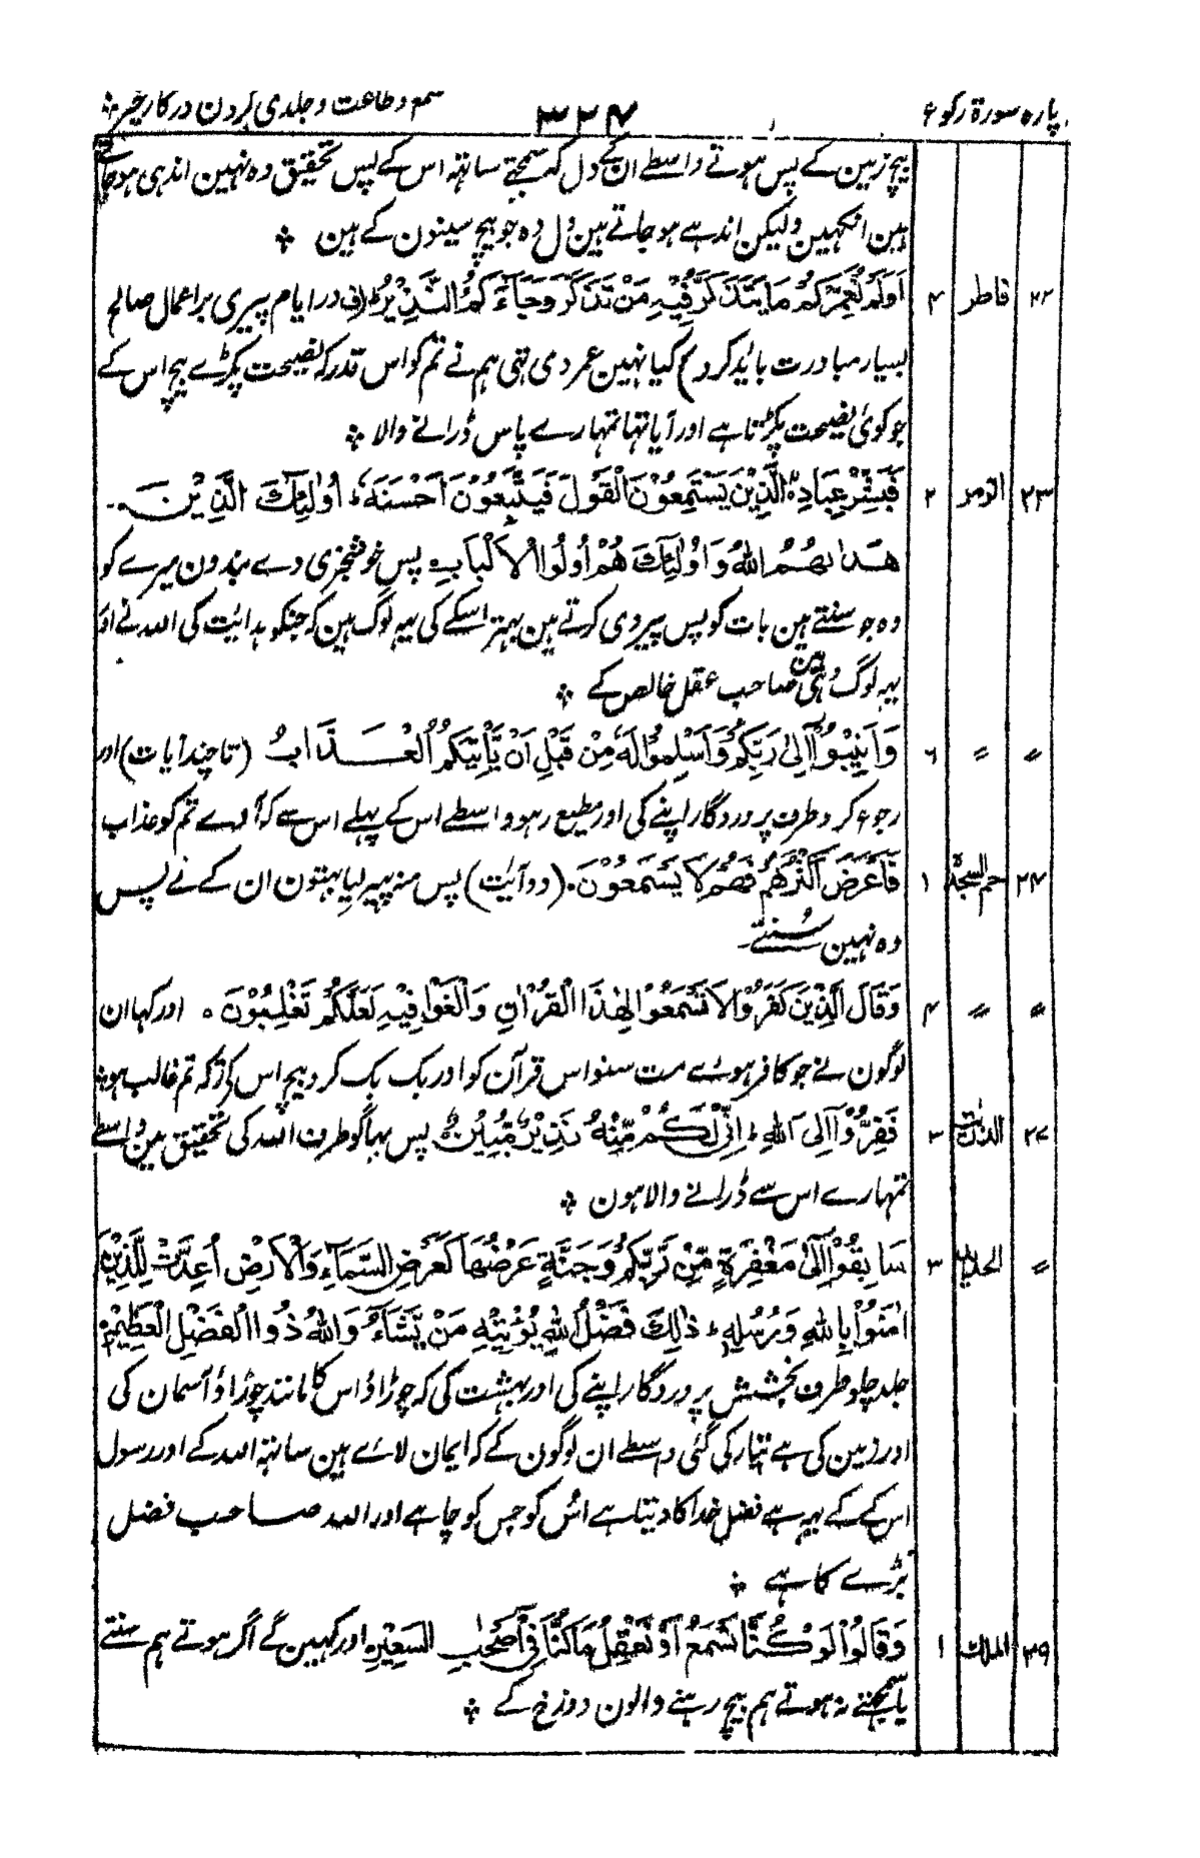 پارہ سورۃ رکوع ۳۲۴ سمع و طاعت و جلدی کردن در کار خیر ⁘
بیچ زمین کے پس ہوتے واسطے ان کے دل کہ سمجتے ساتہہ اس کے پس تحقیق وہ نہین اندہی ہو جاتے
ہین انکہین ولیکن اندہے ہو جاتے ہین دل وہ جو بیچ سینون کے ہین ⁘
۲۲ فاطر ۴ اَوَلَمْ نُعَمِّرْكُمْ مَا يَتَذَكَّرُ فِيْهِ مَنْ تَذَكَّرَ وَجَآءَكُمُ النَّذِيْرُ (ف در ایام پیری بر اعمال صالح
بسیار مبادرت باید کرد) کیا نہین عمر دی تہی ہم نے تم کو اس قدر کہ نصیحت پکڑے بیچ اس کے
جو کوئی نصیحت پکڑتا ہے اور آیا تہا تمہارے پاس ڈرانے والا ⁘
۲۳ الزمر ۲ فَبَشِّرْ عِبَادِ الَّذِيْنَ يَسْتَمِعُوْنَ الْقَوْلَ فَيَتَّبِعُوْنَ اَحْسَنَهٗ ط اُولٰٓئِكَ الَّذِيْنَ
هَدٰىهُمُ اللهُ وَاُولٰٓئِكَ هُمْ اُولُوا الْاَلْبَابِ پس خوشخبری دے بندون میرے کو
وہ جو سنتے ہین بات کو پس پیروی کرتے ہین بہتر اسکے کی یہہ لوگ ہین کہ جنکو ہدائیت کی اللہ نے اور
یہہ لوگ وہی ہین صاحب عقل خالص کے ⁘
〃 〃 ۶ وَاَنِيْبُوْٓا اِلٰى رَبِّكُمْ وَاَسْلِمُوْا لَهٗ مِنْ قَبْلِ اَنْ يَّاْتِيَكُمُ الْعَذَابُ (تا چند آیات) اور
رجوع کرو طرف پروردگار اپنے کی اور مطیع رہو واسطے اس کے پہلے اس سے کہ آوے تم کو عذاب
۲۴ حم السجدۃ ۱ فَاَعْرَضَ اَكْثَرُهُمْ فَهُمْ لَا يَسْمَعُوْنَ ۔ (دو آیٰت) پس منہ پہیر لیا بہتون ان کے نے پس
وہ نہین سُنتے۔
〃 〃 ۴ وَقَالَ الَّذِيْنَ كَفَرُوْا لَا تَسْمَعُوْا لِهٰذَا الْقُرْاٰنِ وَالْغَوْا فِيْهِ لَعَلَّكُمْ تَغْلِبُوْنَ ۰ اور کہا ان
لوگون نے جو کافر ہوئے مت سنو اس قرآن کو اور بک بک کرو بیچ اس کے تو کہ تم غالب ہو ⁘
۲۷ الذٰریٰت ۳ فَفِرُّوْٓا اِلَى اللهِ ط اِنِّيْ لَكُمْ مِّنْهُ نَذِيْرٌ مُّبِيْنٌ پس بہاگو طرف اللہ کی تحقیق مین واسطے
تمہارے اس سے ڈرانے والا ہون ⁘
〃 الحدید ۳ سَابِقُوْٓا اِلٰى مَغْفِرَةٍ مِّنْ رَّبِّكُمْ وَجَنَّةٍ عَرْضُهَا كَعَرْضِ السَّمَآءِ وَالْاَرْضِ اُعِدَّتْ لِلَّذِيْنَ
اٰمَنُوْا بِاللهِ وَرُسُلِهٖ ط ذٰلِكَ فَضْلُ اللهِ يُؤْتِيْهِ مَنْ يَّشَآءُ وَاللهُ ذُوا الْفَضْلِ الْعَظِيْمِ
جلد چلو طرف بخشش پروردگار اپنے کی اور بہشت کی کہ چوڑاؤ اس کا مانند چوڑاؤ آسمان کی
اور زمین کی ہے تیار کی گئی واسطے ان لوگون کے کہ ایمان لائے ہین ساتہہ اللہ کے اور رسول
اس کے کے یہہ ہے فضل خدا کا دیتا ہے اُس کو جس کو چاہے اور اللہ صاحب فضل
بڑے کا ہے ⁘
۲۹ الملک ۱ وَقَالُوْا لَوْ كُنَّا نَسْمَعُ اَوْ نَعْقِلُ مَا كُنَّا فِيْٓ اَصْحٰبِ السَّعِيْرِ اور کہین گے اگر ہوتے ہم سنتے
یا سمجتے نہ ہوتے ہم بیچ رہنے والون دوزخ کے ⁘